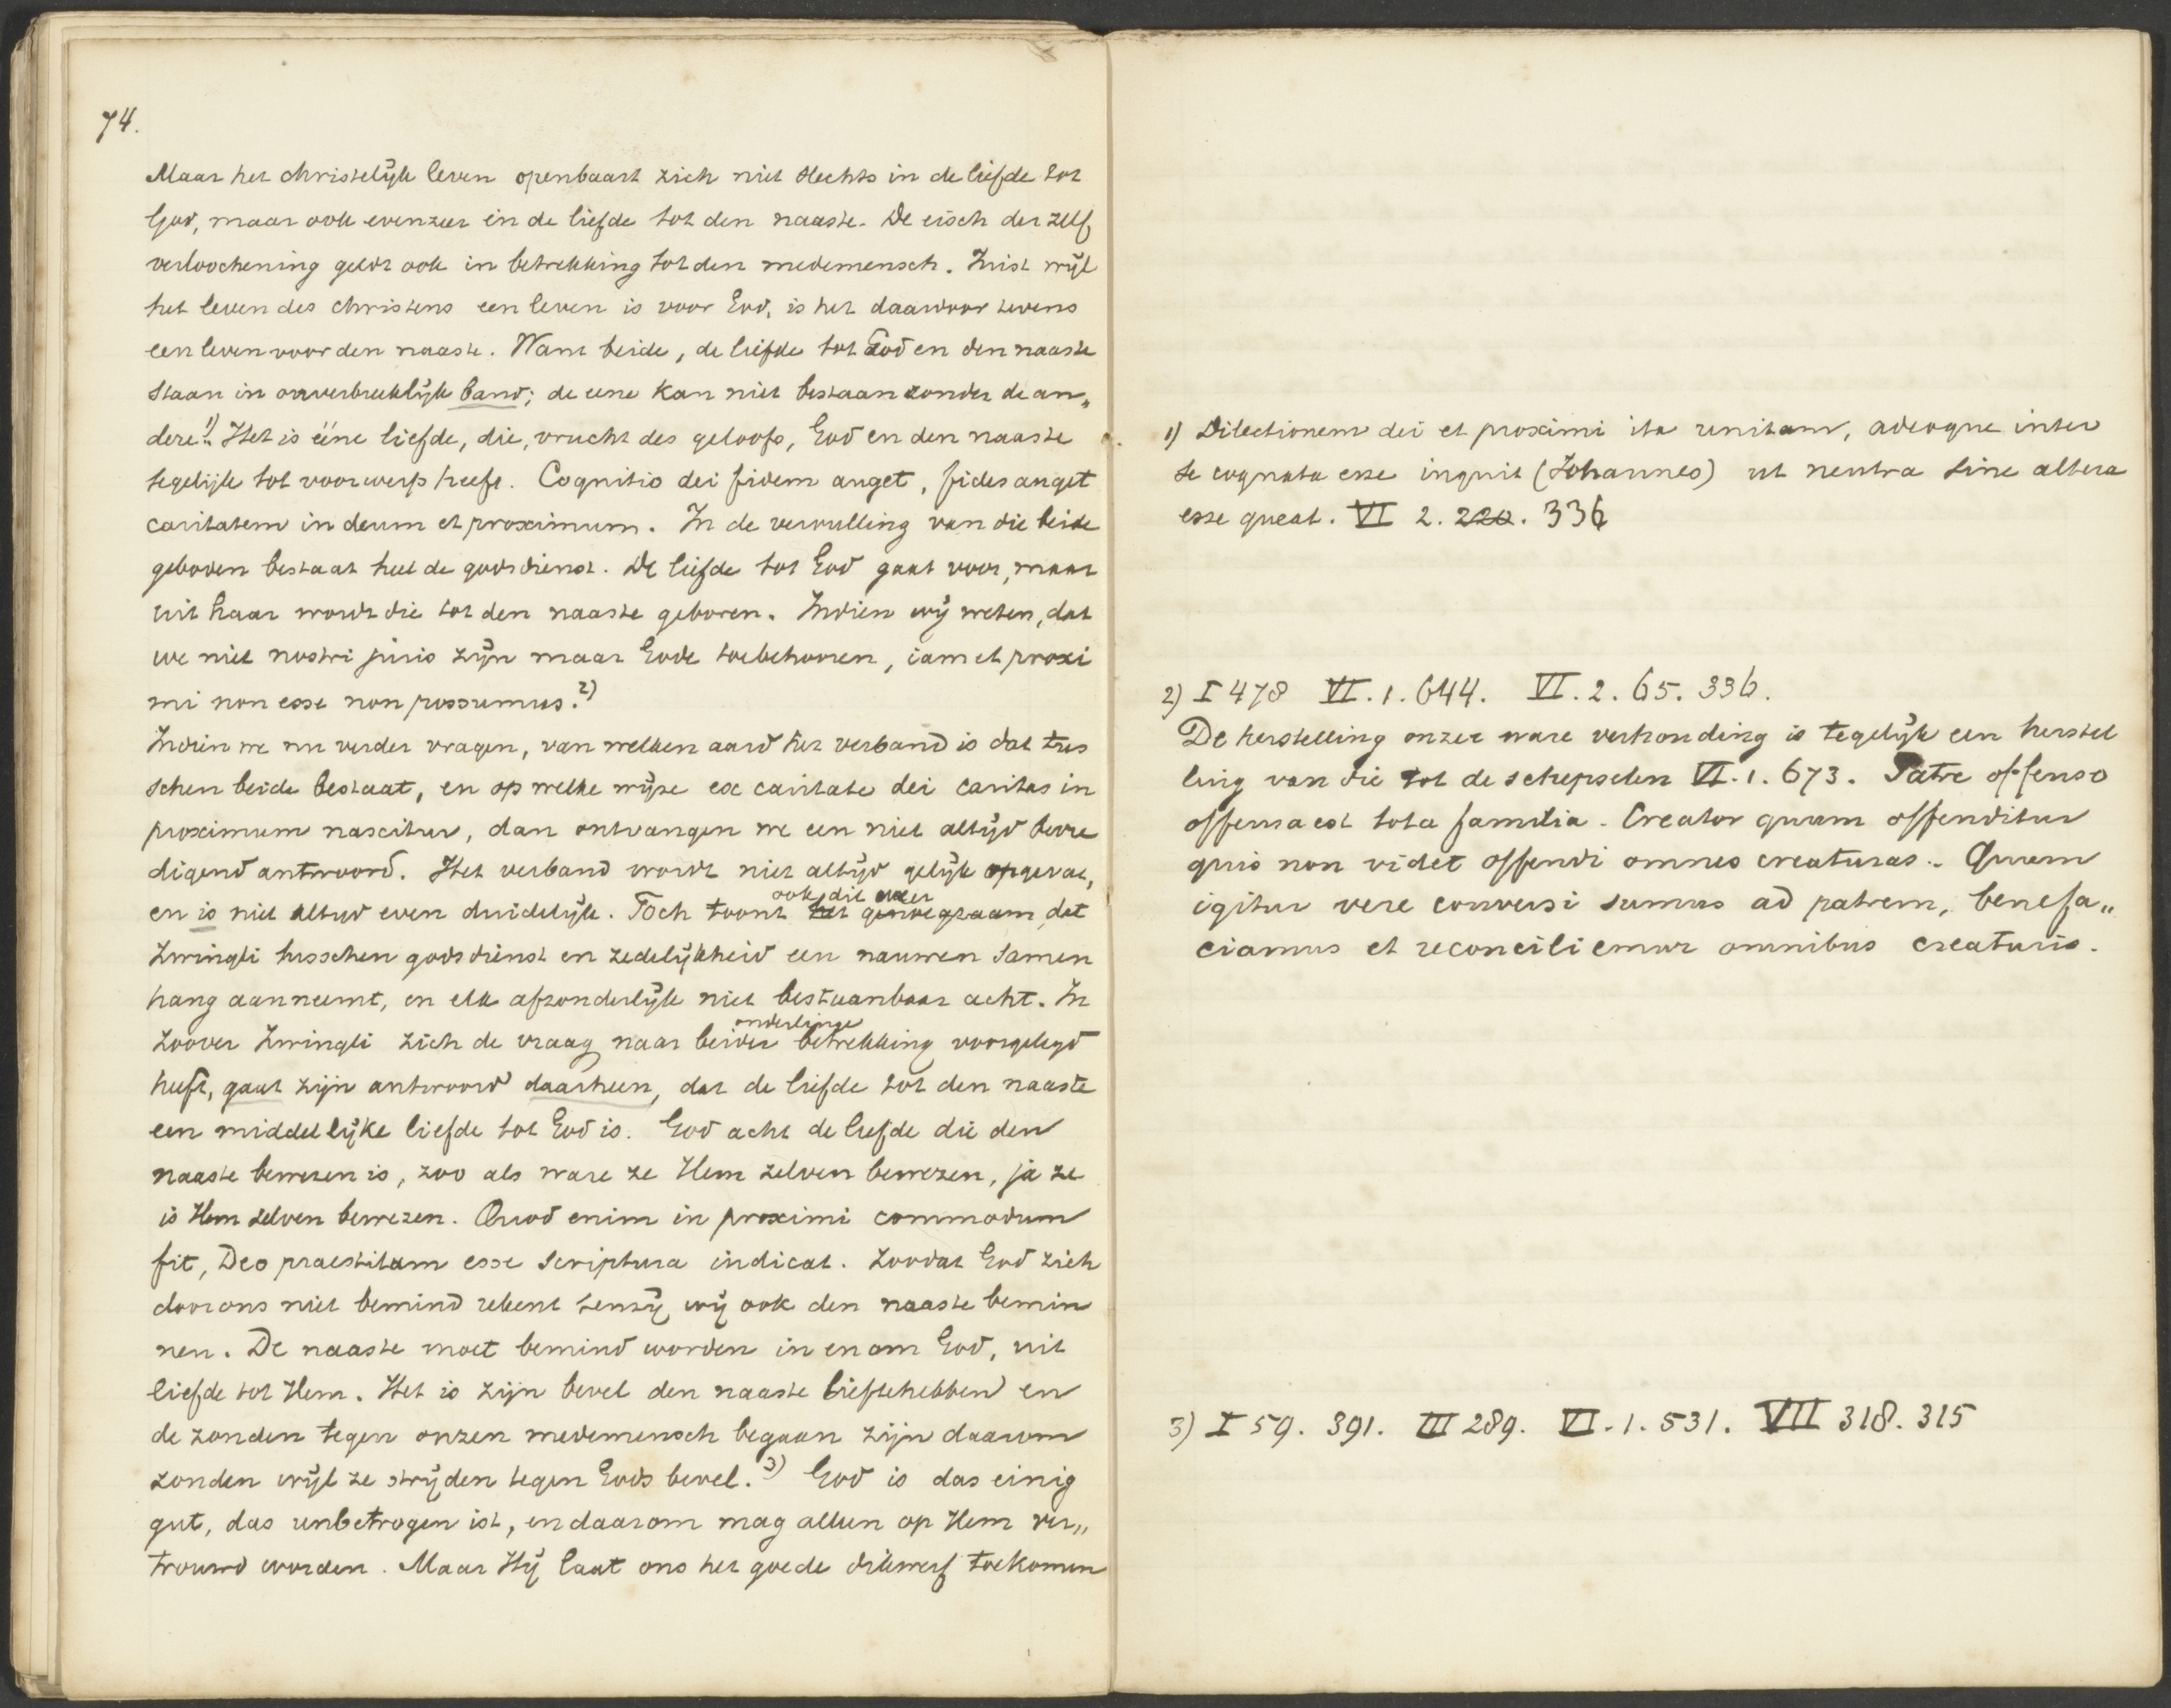 74.
Maar het christelijk leven openbaart zich niet slechts in de liefde tot
God, maar ook evenzeer in de liefde tot den naaste. De eisch der zelf
verloochening geldt ook in betrekking tot den medemensch. Juist wijl
het leven des christens een leven is voor God, is het daardoor tevens
een leven voor den naaste. Want beide, de liefde tot God en den naaste
staan in onverbreeklijk band; de eene kan niet bestaan zonder de an„
dere.1) Het is ééne liefde, die, vrucht des geloofs, God en den naaste
tegelijk tot voorwerp heeft. Cognitio dei fidem auget, fides auget
caritatem in deum et proximum. In de vervulling van die beide
geboden bestaat heel de godsdienst. De liefde tot God gaat voor, maar
uit haar wordt die tot den naaste geboren. Indien wij weten, dat
we niet nostri juris zijn maar Gode toebehooren, iam et proxi
mi non esse non possumus.2)
Indien we nu verder vragen, van welken aard het verband is dat tus
schen beide bestaat, en op welke wijze ex caritate dei caritas in
proximum nascitur, dan ontvangen we een niet altijd bevre
digend antwoord. Het verband wordt niet altijd gelijk opgevat,
en is niet altijd even duidelijk. Toch toont ook dit weer het genoegzaam, dat
Zwingli tusschen godsdienst en zedelijkheid een nauwen samen
hang aanneemt, en elk afzonderlijk niet bestaanbaar acht. In
zoover Zwingli zich de vraag naar beider onderlinge betrekking voorgelegd
heeft, gaat zijn antwoord daarheen, dat de liefde tot den naaste
een middellijke liefde tot God is. God acht de liefde die den
naaste bewezen is, zoo als ware ze Hem zelven bewezen, ja ze
is Hem zelven bewezen. Quod enim in proximi commodum
fit, Deo praestitum esse scriptura indicat. Zoodat God zich
door ons niet bemind rekent tenzij wij ook den naaste bemin
nen. De naaste moet bemind worden in en om God, uit
liefde tot Hem. Het is zijn bevel den naaste liefte hebben en
de zonden tegen onzen medemensch begaan zijn daarom
zonden wijl ze strijden tegen Gods bevel.3) God is das einig
gut, das unbetrogen ist, en daarom mag alleen op Hem ver„
trouwd worden. Maar Hij laat ons het goede dikwerf toekomen
1) Dilectionem dei et proximi ita unitam, adeoque inter
se cognata esse inquit (Johannes) ut neutra sine altera
esse queat. VI 2. 220. 336
2) I 478 VI. 1. 644. VI. 2. 65. 336.
De herstelling onzer ware verhouding is tegelijk een herstel
ling van die tot de schepselen VI. 1. 673. Patre offenso
offensa est tota familia. Creator quum offenditur
quis non videt offendi omnes creaturas. Quum
igitur vere conversi sumus ad patrem, benefa„
ciamus et reconciliemur omnibus creaturis.
3) I 59. 391. III 289. VI. 1. 531. VII 318. 315